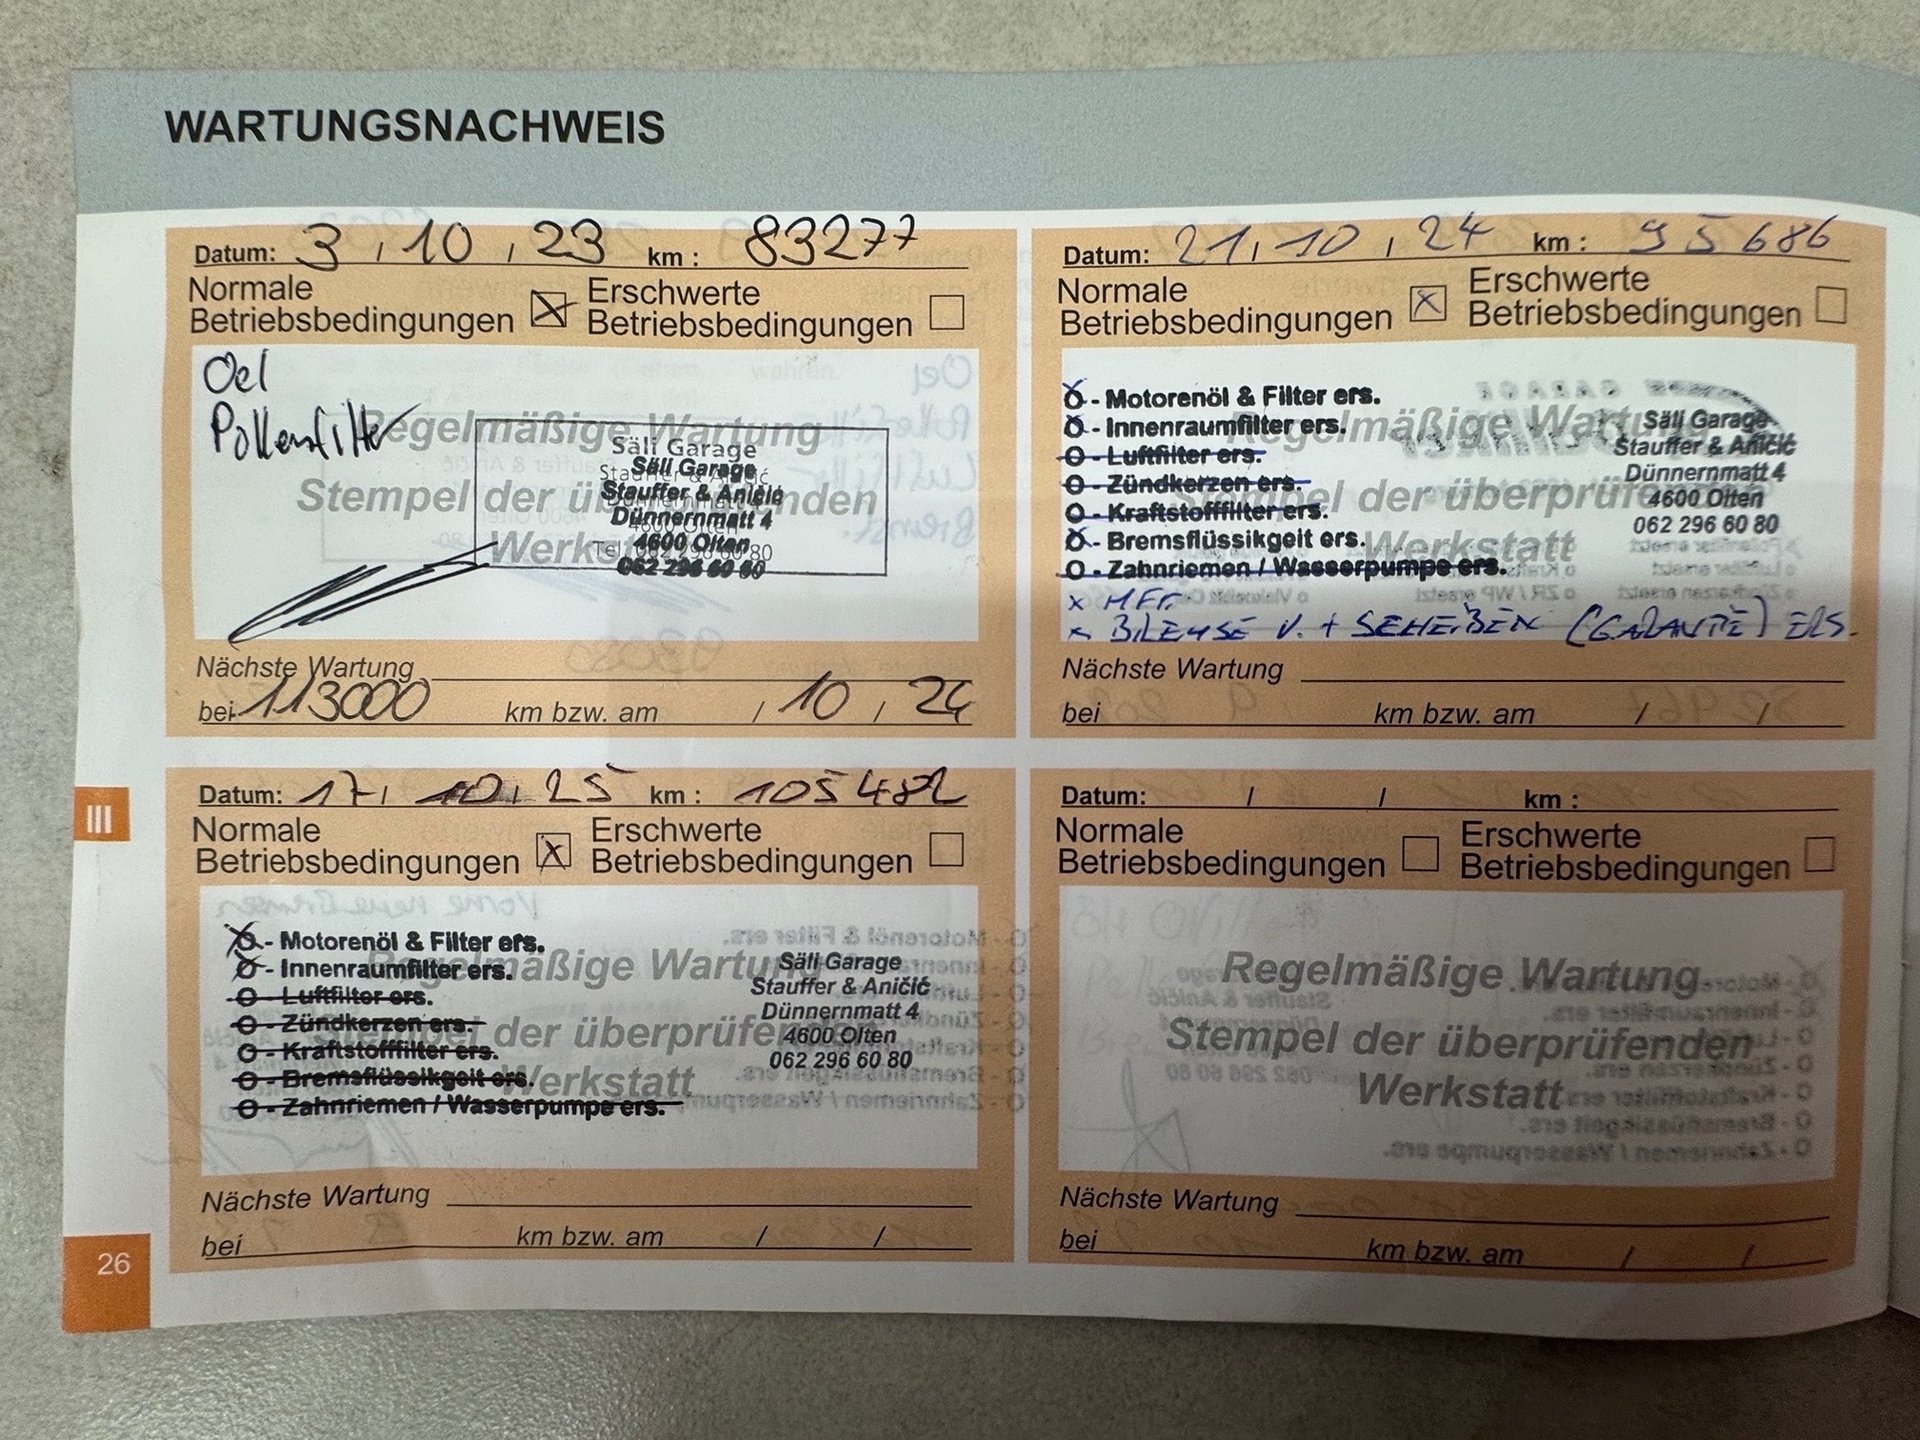 WARTUNGSNACHWEIS
Datum: 3 / 10 / 23 km : 83277
Normale Betriebsbedingungen
Erschwerte Betriebsbedingungen
Oel
Pollenfilter
Regelmäßige Wartung
Stempel der überprüfenden
Werkstatt
Säli Garage
Stauffer & Aničić
Dünnernmatt 4
4600 Olten
062 296 60 80
Nächste Wartung
bei 113000 km bzw. am / 10 / 24
Datum: 21 / 10 / 24 km : 95686
Normale Betriebsbedingungen
Erschwerte Betriebsbedingungen
O - Motorenöl & Filter ers.
O - Innenraumfilter ers.
O - Luftfilter ers.
O - Zündkerzen ers.
O - Kraftstofffilter ers.
O - Bremsflüssikgeit ers.
O - Zahnriemen / Wasserpumpe ers.
Regelmäßige Wartung
Stempel der überprüfenden
Werkstatt
Säli Garage
Stauffer & Aničić
Dünnernmatt 4
4600 Olten
062 296 60 80
x
x BREMSE V. + SCHEIBEN (GARANTIE) ERS.
Nächste Wartung
bei km bzw. am / /
III
Datum: 17 / 10 / 25 km : 105482
Normale Betriebsbedingungen
Erschwerte Betriebsbedingungen
O - Motorenöl & Filter ers.
O - Innenraumfilter ers.
O - Luftfilter ers.
O - Zündkerzen ers.
O - Kraftstofffilter ers.
O - Bremsflüssikgeit ers.
O - Zahnriemen / Wasserpumpe ers.
Regelmäßige Wartung
Stempel der überprüfenden
Werkstatt
Säli Garage
Stauffer & Aničić
Dünnernmatt 4
4600 Olten
062 296 60 80
Nächste Wartung
bei km bzw. am / /
Datum: / / km :
Normale Betriebsbedingungen
Erschwerte Betriebsbedingungen
Regelmäßige Wartung
Stempel der überprüfenden
Werkstatt
Nächste Wartung
bei km bzw. am / /
26